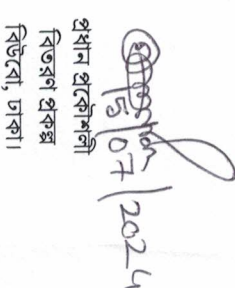 15/07/2024
প্রধান প্রকৌশলী
বিতরণ প্রকল্প
বিউবো, ঢাকা।